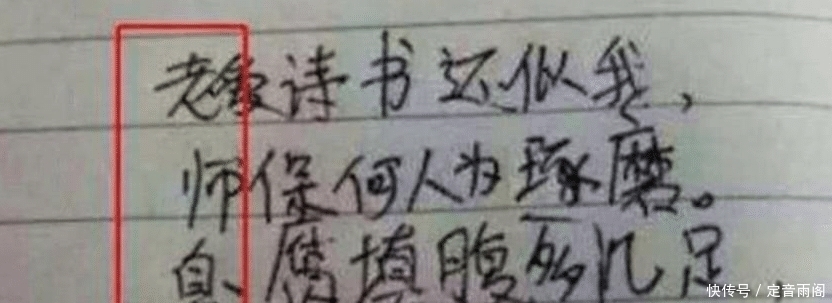 老爱诗书还似我，
师保何人为琢磨。
腐填腹几足
快传号 / 定音雨阁